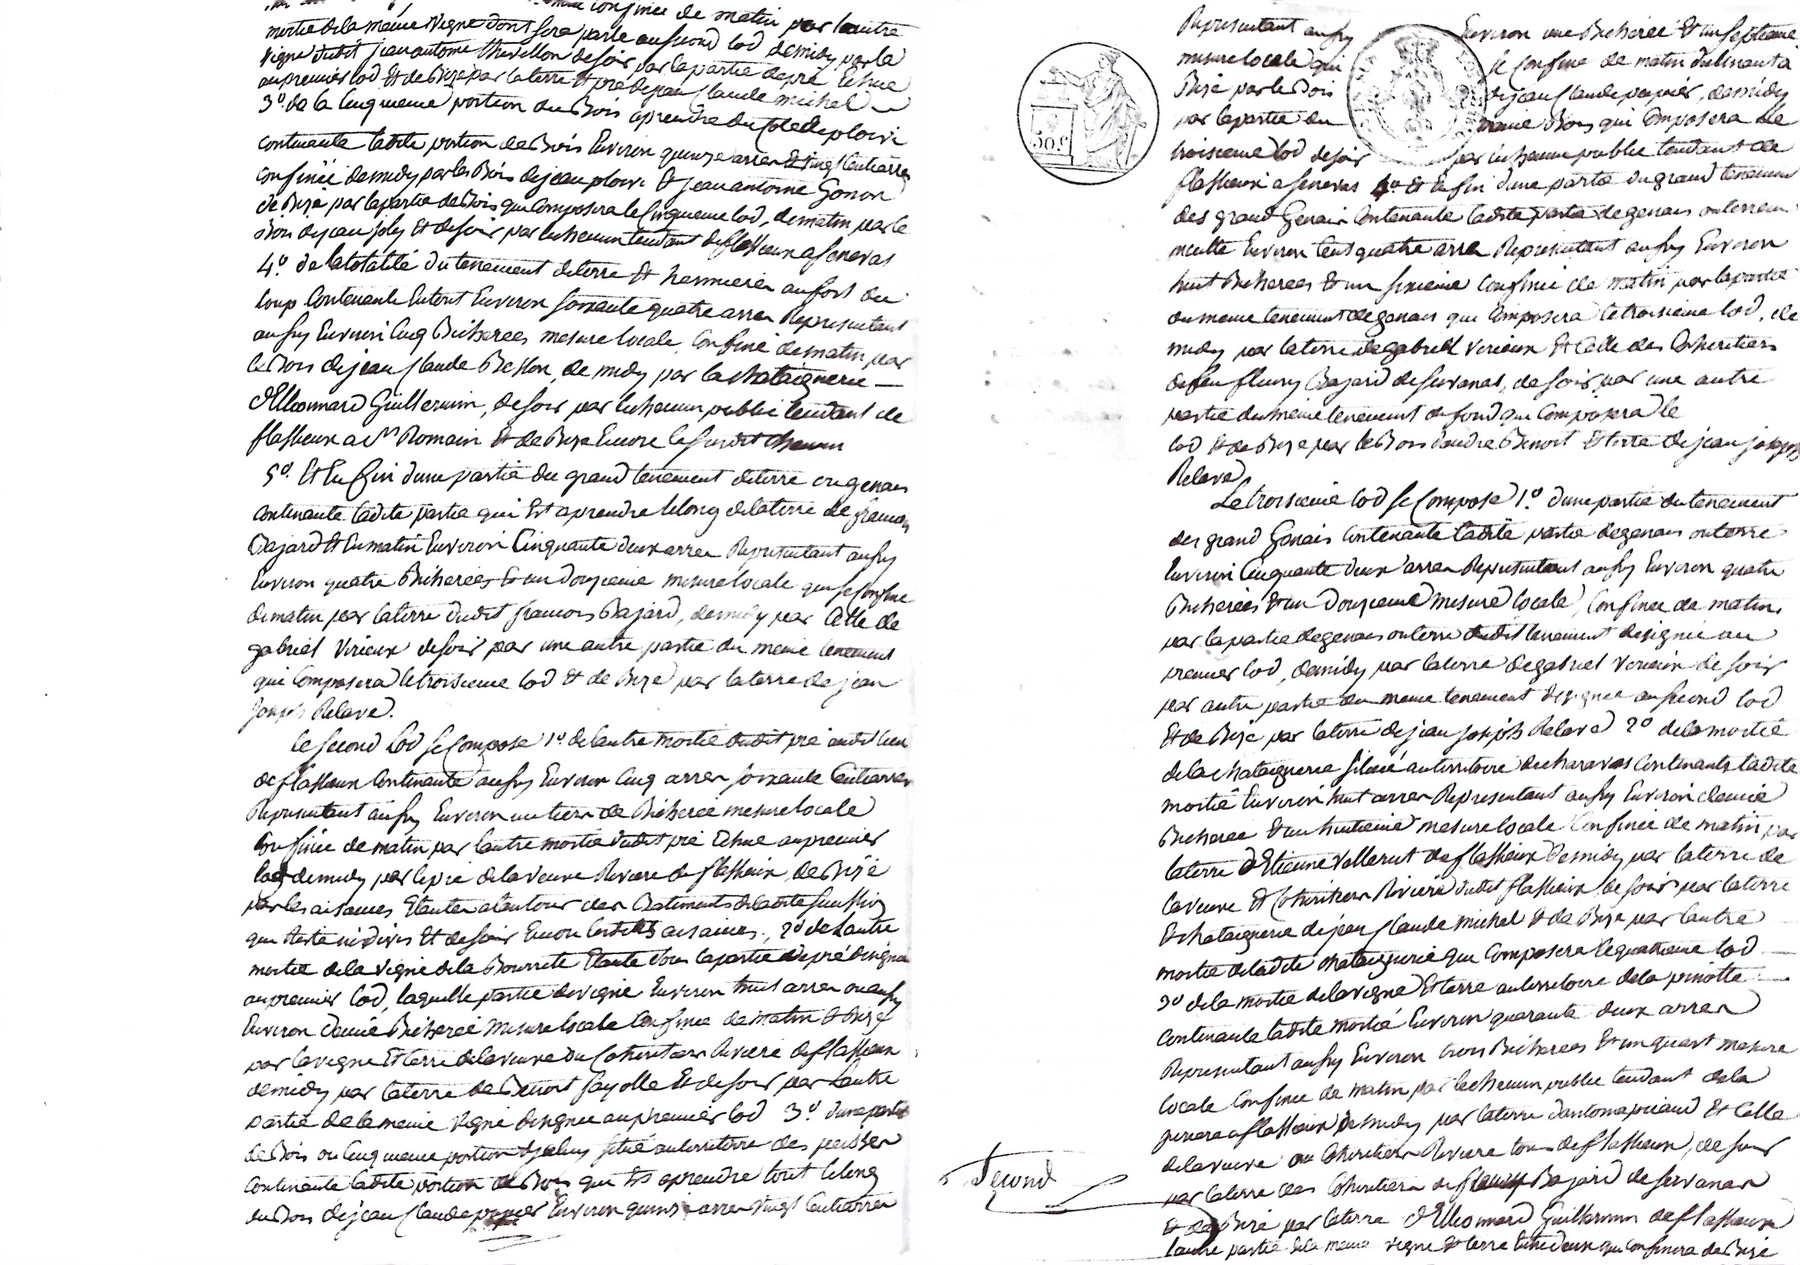 confinée de matin par lautre
moitié dela meme vigne dont sera parlé au second lod, de midy par la
vigne dudit jean antoine Thevillon de soir par la partie de pré échue
au premier lod et de Bize par la terre et pré de jean Claude michel
3º de la Cinquieme portion du Bois aprendre du Coté de ploivi
contenante ladite portion de Bois Environ quinze arres et vingt Centiarres
confinée de midy par les Bois de jean ploivi et jean antoine Gonon
de Bize par la partie de Bois qui Composera le Cinquieme lod, de matin par le
Bois de jean joly et de soir par le chemin tendant de flassieux a senevas
4º de la totalité du tenement de terre et hermieres au fort du
loup Contenante Entout Environ soixante quatre arres Representant
au fur Environ Cinq Bicherees mesure locale, Confiné de matin par
le Bois de jean Claude Besson, de midy par la chataignerie
d'Elleonnard Guillermin, de soir par le chemin public tendant de
flassieux a St Romain et de Bize Encore le susdit chemin
5º Et En fin d'une partie du grand tenement de terre ou genais
contenante ladite partie qui Est aprendre le long de la terre de francois
Bajard et En matin Environ Cinquante deux arres Representant au fur
Environ quatre Bicherées et un Douzieme mesure locale qui se Confine
de matin par la terre dudit francois Bajard, de midy par Celle de
gabriel Virieux de soir par une autre partie du meme tenement
qui Composera le troisieme lod et de Bize par la terre de jean
joseph Relave.
Le second lod se Compose 1º de lautre moitié dudit pré audit lieu
de flassieux Contenante au fur Environ Cinq arres soixante Centiarres
Representant au fur Environ un tiers de Bicheree mesure locale
Confinée de matin par lautre moitié dudit pré Echue au premier
lod de midy par le pré de la veuve Riviere de flassieux, de Bize
par les aisances Etantes alentour des Batiments de ladite succession
qui Reste indivis Et de soir Encore lesdites aisances, 2º de Lautre
moitié de la vigne de la Bourrete Etante sous la partie de pré désignée
au premier lod, laquelle partie de vigne Environ huit arres ou au fur
Environ demie Bicheree mesure locale Confinée de matin et Bize
par la vigne Et terre de la veuve ou Cohéritiers Riviere de flassieux
de midy par la terre de Benoit fayolle Et de soir par Lautre
partie de la meme vigne désignée au premier lod 3º d'une partie
de Bois ou Cinquieme portion situé au territoire des
Contenante ladite portion de Bois qui Est aprendre tout le long
du Bois de jean Claude papier Environ quinze arres vingt Centiarres
Representant au fur Environ une Bicherée et un septieme
mesure locale qui se Confine de matin
Bize par le Bois de jean Claude papier, de midy
par la partie du meme Bois qui Composera Le
troisieme lod de soir par le chemin public tendant de
flassieux a senevas 4º et En fin d'une partie du grand tenement
des grand Genais Contenante ladite partie de genais ou terrein
inculte Environ Cent quatre arres Representant au fur Environ
huit Bicherees et un sixieme Confiné de matin par la partie
du meme tenement de genais qui Composera le troisieme lod, de
midy par la terre de gabriel Virieux Et Celle des Coheritiers
de feu fleury Bajard de servanas, de soir par une autre
partie du meme tenement de fond qui Composera le
lod et de Bize par le Bois d'andre Benoit Et terre de jean joseph
Relave
Le troisieme lod se Compose 1º d'une partie du tenement
des grand Genais Contenante ladite partie de genais ou terre
Environ Cinquante deux arres Representant au fur Environ quatre
Bicherées et un Douzieme mesure locale, Confinée de matin
par la partie de genais ou terre dudit tenement désignée au
premier lod, de midy par la terre de gabriel Verieux de soir
par autre partie du meme tenement désignée au second lod
Et de Bize par la terre de jean joseph Relave 2º de la moitié
de la chataignerie située au territoire du charavas Contenante ladite
moitié Environ huit arres Representant au fur Environ demie
Bicheree et un huitieme mesure locale Confinée de matin par
la terre d'Etienne Vollerut de flassieux de midy par la terre de
la veuve et Coheritiers Riviere dudit flassieux de soir par la terre
Et chataignerie de jean Claude michel et de Bize par lautre
moitié de ladite chataignerie qui Composera le quatrieme lod
3º de la moitié de la vigne Et terre au territoire de la pinotte
contenante ladite moitié Environ quarante deux arres
Representant au fur Environ trois Bicherees Et un quart mesure
locale Confinée de matin par le chemin public tendant de la
a flassieux de midy par la terre d'antoine Et Celle
de la veuve ou Coheritiers Riviere tous de flassieux, de soir
par la terre des Coheritiers de fleury Bajard de servanas
et de Bize par la terre d'Elleonnard Guillermin de flassieux
lautre partie de la meme vigne et terre qui confinera de Bize
Second
50.C